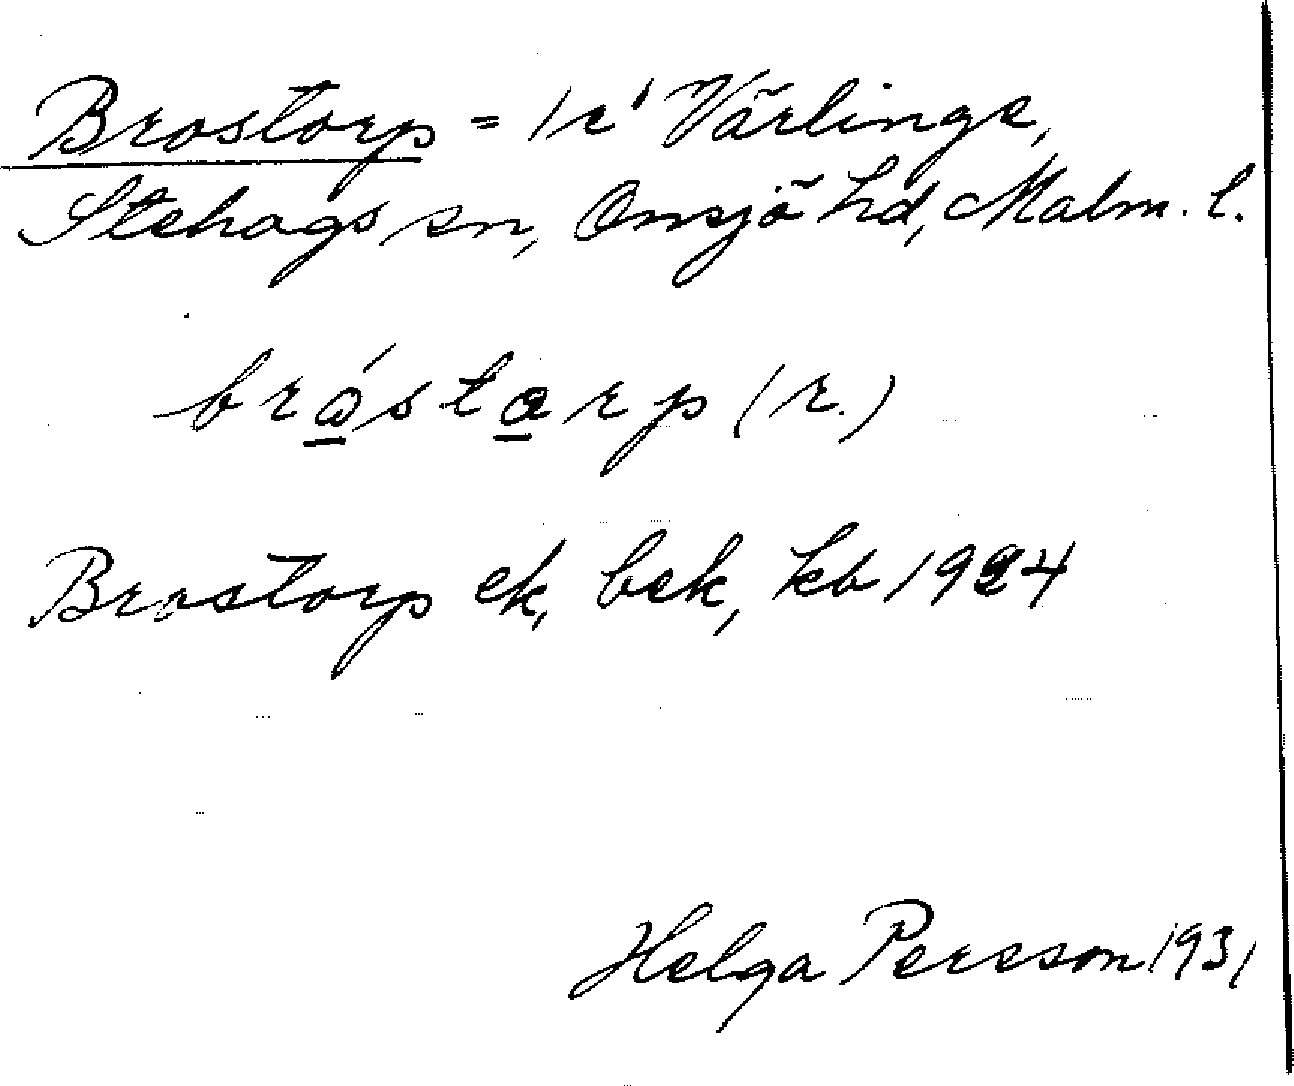 Brostorp = 1c¹ Värlinge,
Stehags sn, Onsjö hd, Malm. l.
bróstorp (r.)
Brostorp ek, bek, kb 1924
Helga Persson 1931